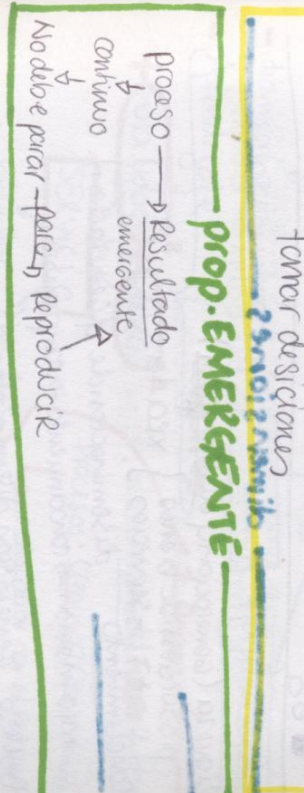 tomar desiciones
prop. EMERGENTE
proceso → Resultado
emergente
continuo
No debe parar para → Reproducir